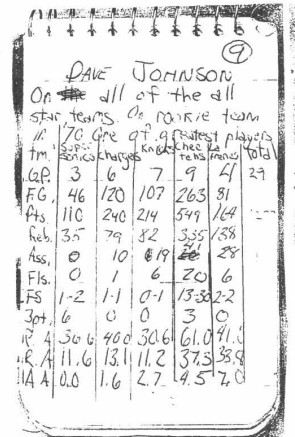 9
DAVE JOHNSON
On all of the all
star teams. On rookie team
in '70 One of greatest players
tm. Super sonics chargers Knicks total
G.P. 3 6 7 9 4 29
FG, 46 120 107 263 81
Pts. 110 240 214 549 164
Reb. 35 79 82 335 138
Ass, 0 10 19 28
Fls. 0 1 6 20 6
FS 1-2 1-1 0-1 13-30 2-2
3pt, 6 0 0 3 0
P A 36.6 40.0 30.6 61.0 41.0
R.A 11.6 13.1 11.2 37.3 33.8
A A 0.0 1.6 2.7 4.5 7.0